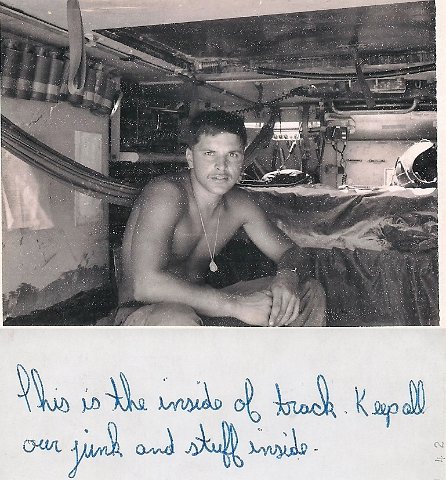 This is the inside of track. Keep all
our junk and stuff inside.